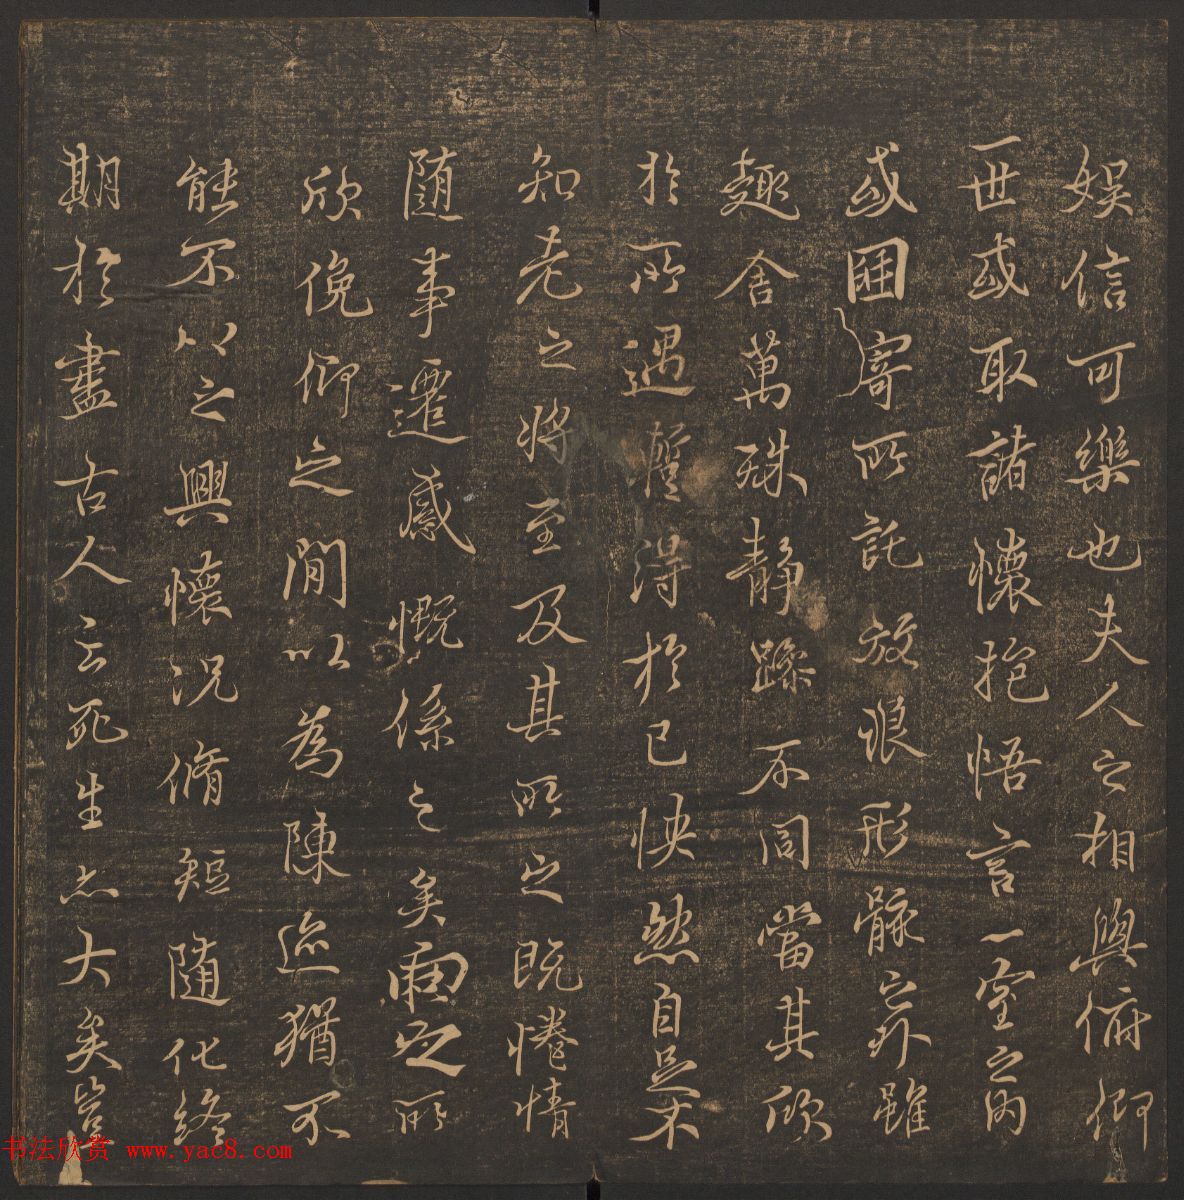 娱信可樂也夫人之相與俯仰
一世或取諸懷抱悟言一室之內
或因寄所託放浪形骸之外雖
趣舍萬殊静躁不同當其欣
於所遇暫得於己怏然自足不
知老之將至及其所之既惓情
随事遷感慨係之矣向之所
欣俛仰之間以為陳迹猶不
能不以之興懷況脩短隨化終
期於盡古人云死生亦大矣豈
书法欣赏 www.yac8.com